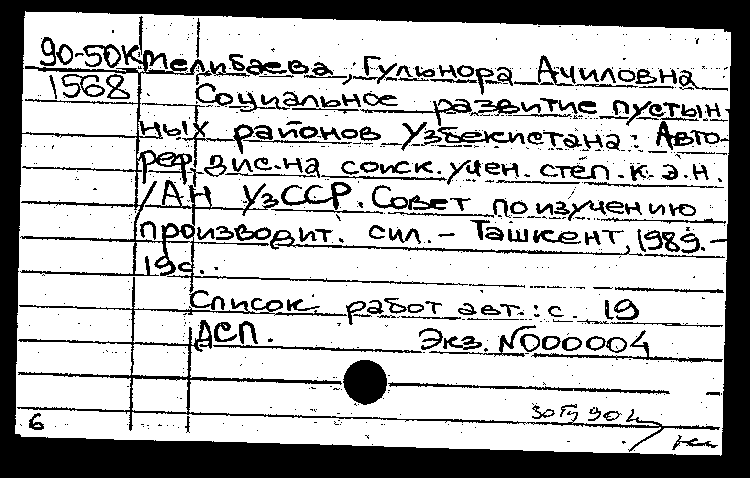 90-50К Мелибаева, Гульнора Ачиловна
1568 Социальное развитие пустын-
ных районов Узбекистана: Авто-
реф. дис. на соиск. учен. степ. к.э.н.
/АН УзССР. Совет по изучению
производит. сил. – Ташкент, 1989. –
19с..
Список работ авт.: с. 19
ДСП. Экз. N000004
6